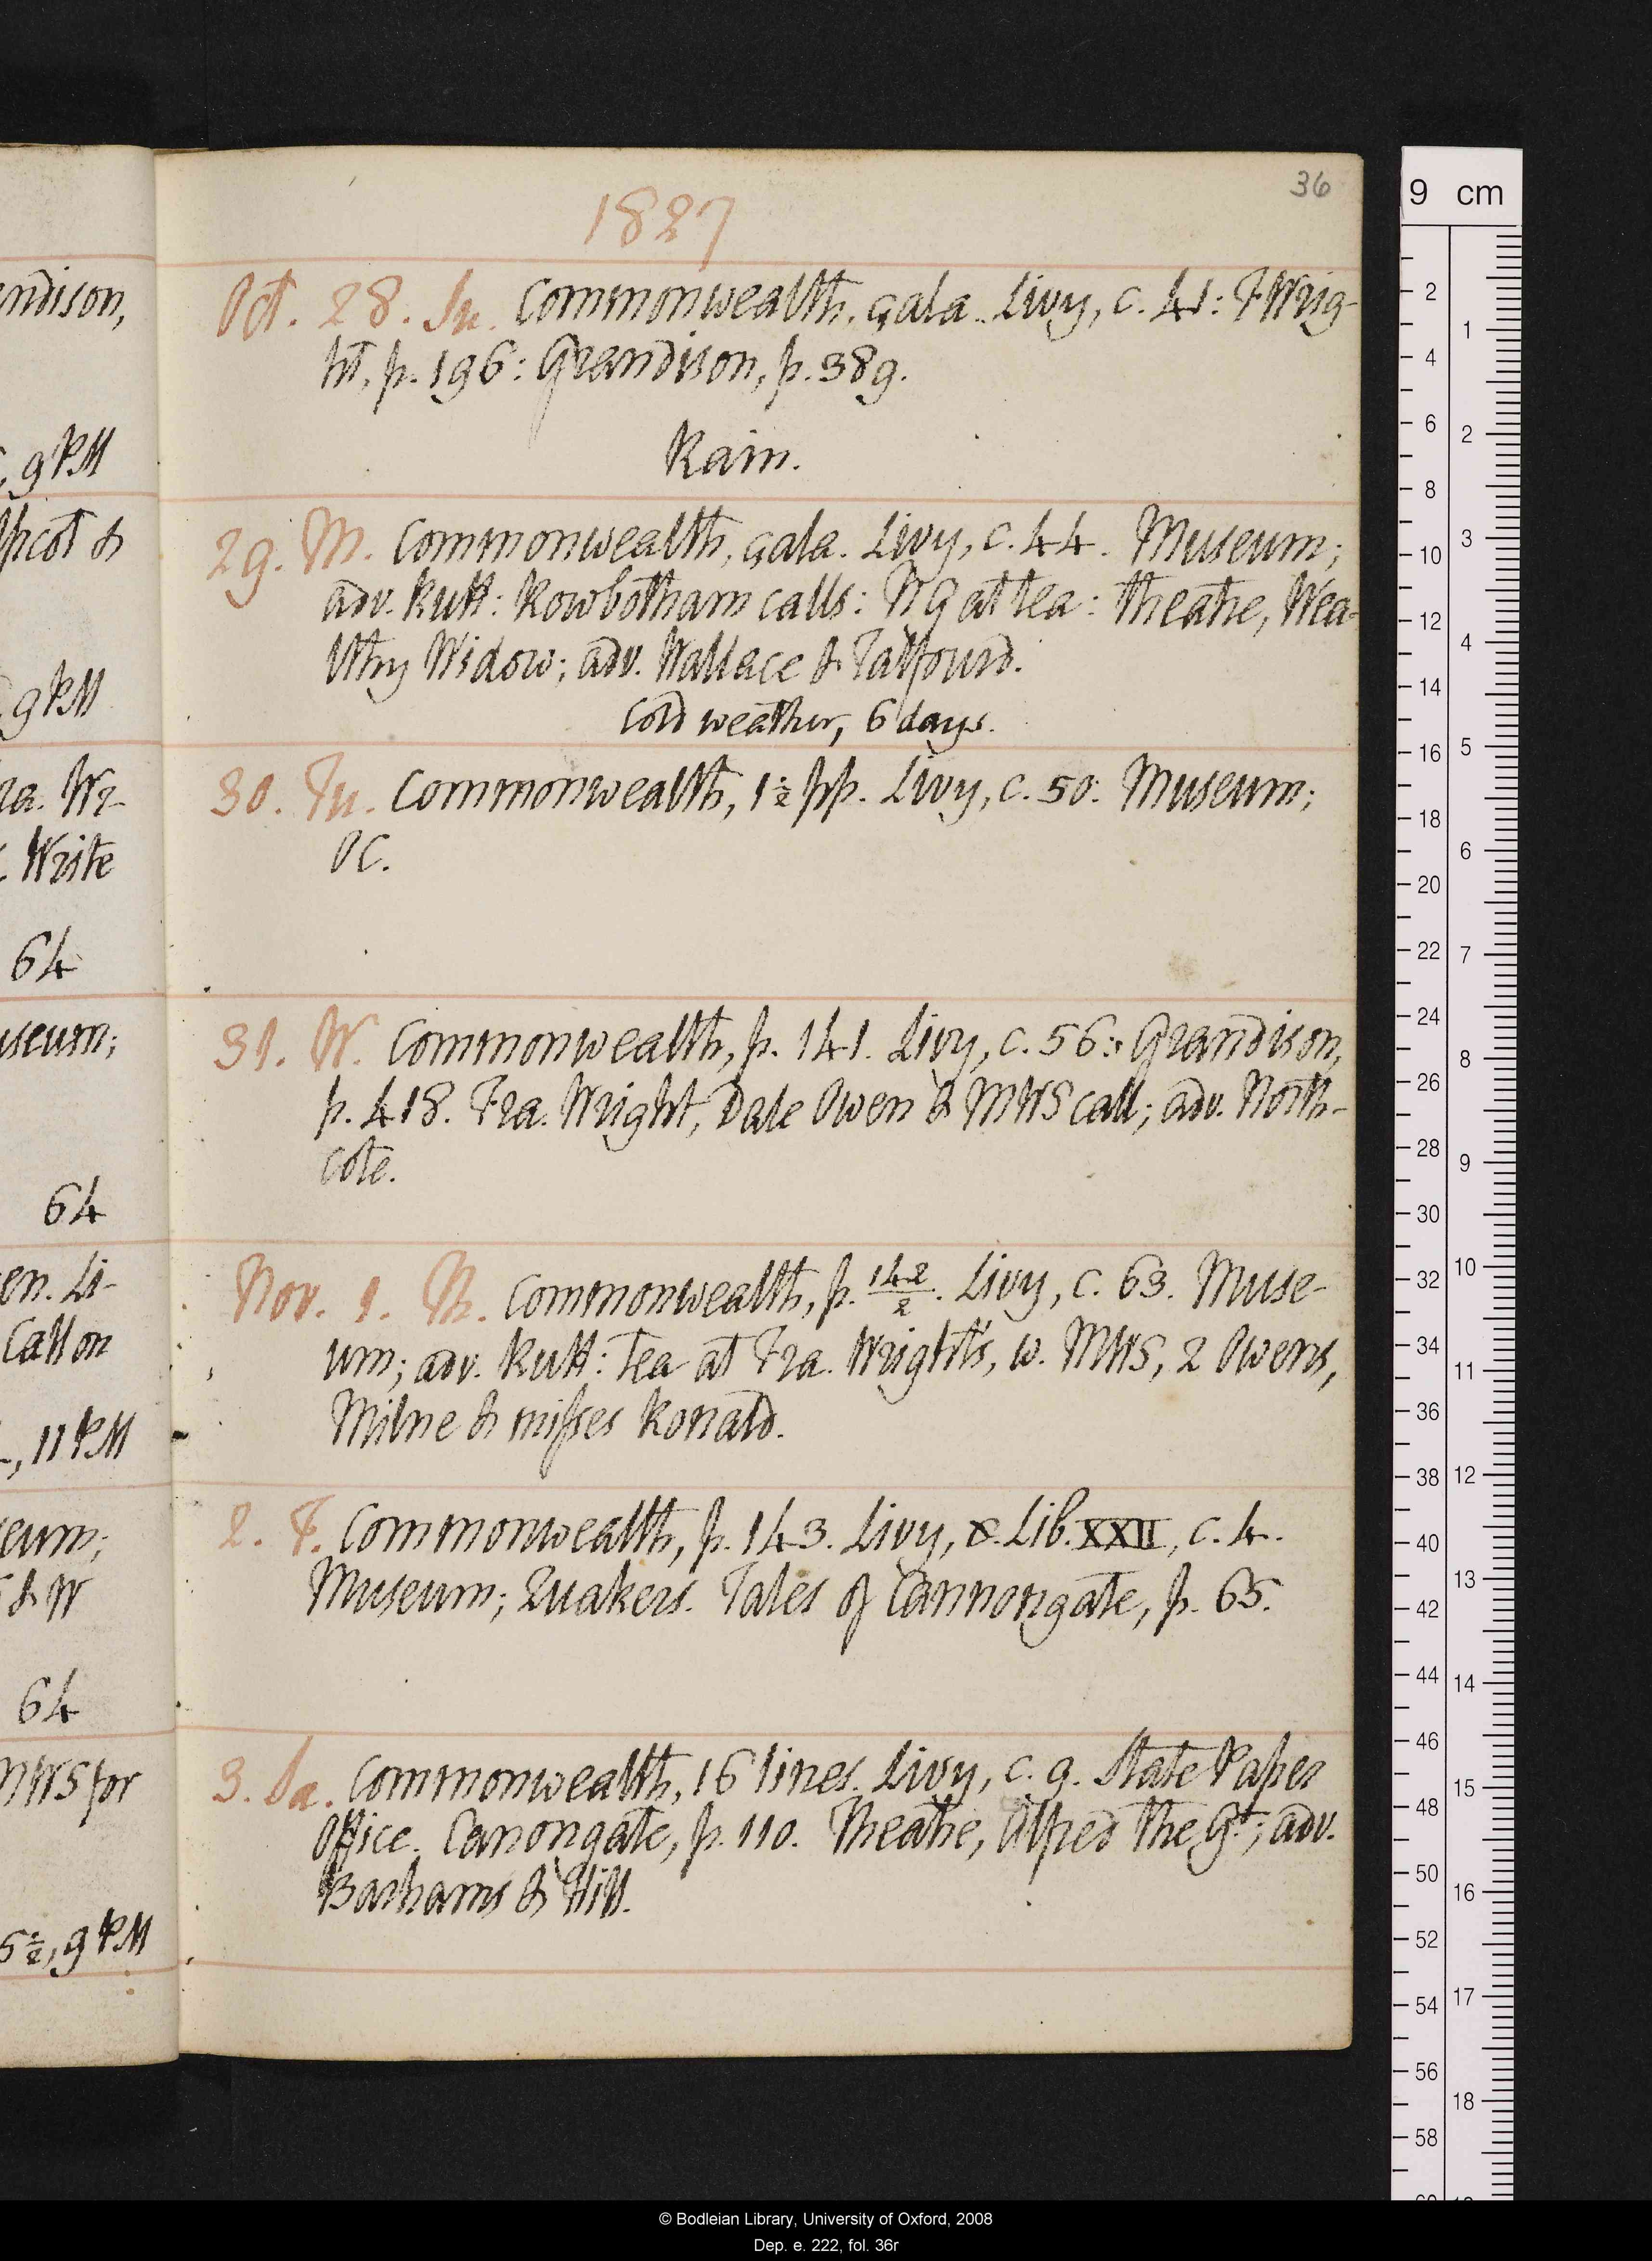 36
1827
Oct. 28. Su. Commonwealth, gala. Livy, c. 41: F Wrig-
ht, p. 196: Grandison, p. 389.
Rain.
29. M. Commonwealth, gala. Livy, c. 44. Museum;
adv. Rutt: Rowbotham calls: NG at tea: theatre, Wea-
lthy Widow; adv. Wallace & Talfourd.
Cold weather, 6 days.
30. Tu. Commonwealth, 1½ pp. Livy, c. 50: Museum;
OC.
31. W. Commonwealth, p. 141. Livy, c. 56: Grandison,
p. 418. Fra. Wright, Dale Owen & MWS call; adv. North-
cote.
Nov. 1. Th. Commonwealth, p. 142/2. Livy, c. 63. Muse-
um; adv. Rutt: tea at Fra. Wright's, w. MWS, 2 Owens,
Milne & misses Ronald.
2. F. Commonwealth, p. 143. Livy, Lib. XXII, c. 4.
Museum; Quakers. Tales of Cannongate, p. 65.
3. Sa. Commonwealth, 16 lines. Livy, c. 9. State Paper
Office. Canongate, p. 110. Theatre, Alfred the Gt; adv.
Barhams & Hill.
ndison,
, 9 PM
lpcot &
9 PM
ra. Wr-
. Write
64
useum;
64
en. Li-
Call on
, 11 PM
eum;
& W
64
MWS for
5½, 9 PM
9 cm
2
4
6
8
10
12
14
16
18
20
22
24
26
28
30
32
34
36
38
40
42
44
46
48
50
52
54
56
58
1
2
3
4
5
6
7
8
9
10
11
12
13
14
15
16
17
18
© Bodleian Library, University of Oxford, 2008
Dep. e. 222, fol. 36r